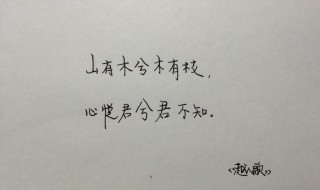 山有木兮木有枝，
心悦君兮君不知．
《越人歌》